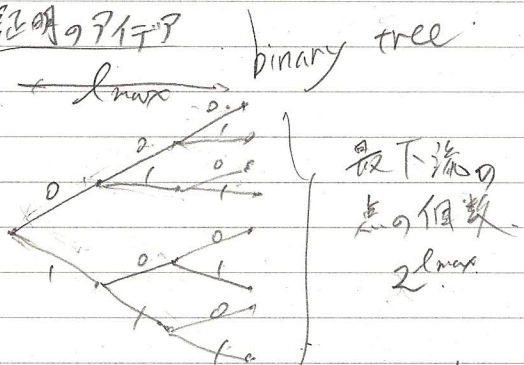 証明のアイデア
binary tree
lmax
0
0
1
0
1
0
1
1
0
0
1
1
0
1
最下流の
点の個数
2^lmax